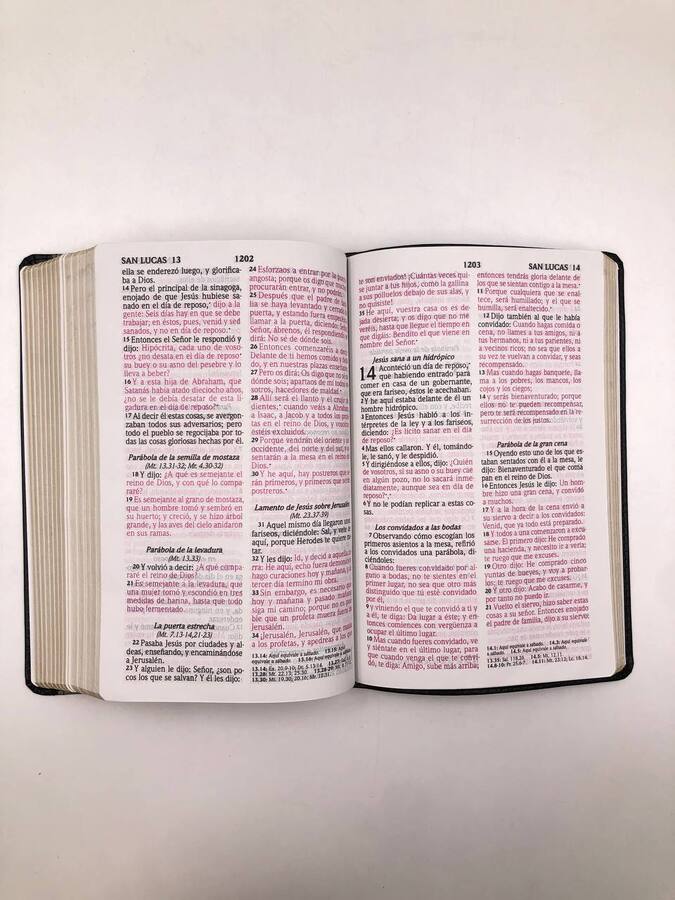 SAN LUCAS 13
1202
ella se enderezó luego, y glorifica-
ba a Dios.
14 Pero el principal de la sinagoga,
enojado de que Jesús hubiese sa-
nado en el día de reposo,* dijo a la
gente: Seis días hay en que se debe
trabajar; en éstos, pues, venid y sed
sanados, y no en día de reposo.*
15 Entonces el Señor le respondió y
dijo: Hipócrita, cada uno de voso-
tros ¿no desata en el día de reposo*
su buey o su asno del pesebre y lo
lleva a beber?
16 Y a esta hija de Abraham, que
Satanás había atado dieciocho años,
¿no se le debía desatar de esta li-
gadura en el día de reposo?*
17 Al decir él estas cosas, se avergon-
zaban todos sus adversarios; pero
todo el pueblo se regocijaba por to-
das las cosas gloriosas hechas por él.
Parábola de la semilla de mostaza
(Mt. 13.31-32; Mr. 4.30-32)
18 Y dijo: ¿A qué es semejante el
reino de Dios, y con qué lo compa-
raré?
19 Es semejante al grano de mostaza,
que un hombre tomó y sembró en
su huerto; y creció, y se hizo árbol
grande, y las aves del cielo anidaron
en sus ramas.
Parábola de la levadura
(Mt. 13.33)
20 Y volvió a decir: ¿A qué compa-
raré el reino de Dios?
21 Es semejante a la levadura, que
una mujer tomó y escondió en tres
medidas de harina, hasta que todo
hubo fermentado.
La puerta estrecha
(Mt. 7.13-14,21-23)
22 Pasaba Jesús por ciudades y al-
deas, enseñando, y encaminándose
a Jerusalén.
23 Y alguien le dijo: Señor, ¿son po-
cos los que se salvan? Y él les dijo:
24 Esforzaos a entrar por la
angosta; porque os digo que
procurarán entrar, y no
25 Después que el padre de
lia se haya levantado y cerrado
puerta, y estando fuera
a llamar a la puerta, diciendo:
Señor, ábrenos, él respondiendo
dirá: No sé de dónde sois.
26 Entonces comenzaréis a
Delante de ti hemos comido y
do, y en nuestras plazas
27 Pero os dirá: Os digo que no sé
dónde sois; apartaos de mí todos
sotros, hacedores de maldad.
28 Allí será el llanto y el crujir
dientes,* cuando veáis a Abraham
a Isaac, a Jacob y a todos los
tas en el reino de Dios, y
estéis excluidos.
29 Porque vendrán del oriente y
occidente, del norte y del sur, y
sentarán a la mesa en el reino
Dios.*
30 Y he aquí, hay postreros que
rán primeros, y primeros que
postreros.*
Lamento de Jesús sobre Jerusalén
(Mt. 23.37-39)
31 Aquel mismo día llegaron
fariseos, diciéndole: Sal, y vete
aquí, porque Herodes te quiere
tar.
32 Y les dijo: Id, y decid a
rra: He aquí, echo fuera
hago curaciones hoy y mañana, y
tercer día termino mi obra.
33 Sin embargo, es necesario
hoy y mañana y pasado mañana
siga mi camino; porque no es
ble que un profeta muera fuera
Jerusalén.
34 Jerusalén, Jerusalén, que
a los profetas, y apedreas a los
13.14: Aquí equivale a sábado. 13.15: Aquí
equivale a sábado.
13.14: Ex. 20.9-10; Dt. 5.13-14.
13.28: Mt. 22.13; 25.30.
13.30: Mt. 19.30; 20.16; Mr. 10.31.
1203
SAN LUCAS 14
te son enviados! ¡Cuántas veces qui-
se juntar a tus hijos, como la gallina
a sus polluelos debajo de sus alas, y
no quisiste!
35 He aquí, vuestra casa os es de-
jada desierta; y os digo que no me
veréis, hasta que llegue el tiempo en
que digáis: Bendito el que viene en
nombre del Señor.*
Jesús sana a un hidrópico
14 Aconteció un día de reposo,*
que habiendo entrado para
comer en casa de un gobernante,
que era fariseo, éstos le acechaban.
2 Y he aquí estaba delante de él un
hombre hidrópico.
3 Entonces Jesús habló a los in-
térpretes de la ley y a los fariseos,
diciendo: ¿Es lícito sanar en el día
de reposo?*
4 Mas ellos callaron. Y él, tomándo-
le, le sanó, y le despidió.
5 Y dirigiéndose a ellos, dijo: ¿Quién
de vosotros, si su asno o su buey cae
en algún pozo, no lo sacará inme-
diatamente, aunque sea en día de
reposo?*
6 Y no le podían replicar a estas co-
sas.
Los convidados a las bodas
7 Observando cómo escogían los
primeros asientos a la mesa, refirió
a los convidados una parábola, di-
ciéndoles:
8 Cuando fueres convidado por al-
guno a bodas, no te sientes en el
primer lugar, no sea que otro más
distinguido que tú esté convidado
por él,
9 y viniendo el que te convidó a ti y
a él, te diga: Da lugar a éste; y en-
tonces comiences con vergüenza a
ocupar el último lugar.
10 Mas cuando fueres convidado, ve
y siéntate en el último lugar, para
que cuando venga el que te convi-
dó, te diga: Amigo, sube más arriba;
entonces tendrás gloria delante de
los que se sientan contigo a la mesa.
11 Porque cualquiera que se enal-
tece, será humillado; y el que se
humilla, será enaltecido.*
12 Dijo también al que le había
convidado: Cuando hagas comida o
cena, no llames a tus amigos, ni a
tus hermanos, ni a tus parientes, ni
a vecinos ricos; no sea que ellos a
su vez te vuelvan a convidar, y seas
recompensado.
13 Mas cuando hagas banquete, lla-
ma a los pobres, los mancos, los
cojos y los ciegos;
14 y serás bienaventurado; porque
ellos no te pueden recompensar,
pero te será recompensado en la re-
surrección de los justos.
Parábola de la gran cena
15 Oyendo esto uno de los que es-
taban sentados con él a la mesa, le
dijo: Bienaventurado el que coma
pan en el reino de Dios.
16 Entonces Jesús le dijo: Un hom-
bre hizo una gran cena, y convidó
a muchos.
17 Y a la hora de la cena envió a su
siervo a decir a los convidados:
Venid, que ya todo está preparado.
18 Y todos a una comenzaron a excu-
sarse. El primero dijo: He comprado
una hacienda, y necesito ir a verla;
te ruego que me excuses.
19 Otro dijo: He comprado cinco
yuntas de bueyes, y voy a probar-
los; te ruego que me excuses.
20 Y otro dijo: Acabo de casarme, y
por tanto no puedo ir.
21 Vuelto el siervo, hizo saber estas
cosas a su señor. Entonces enojado
el padre de familia, dijo a su siervo:
14.1: Aquí equivale a sábado. 14.3: Aquí equivale a
sábado. 14.5: Aquí equivale a sábado.
13.35: Sal. 118.26. 14.5: Mt. 12.11.
14.8-10: Pr. 25.6-7. 14.11: Mt. 23.12; Lc. 18.14.